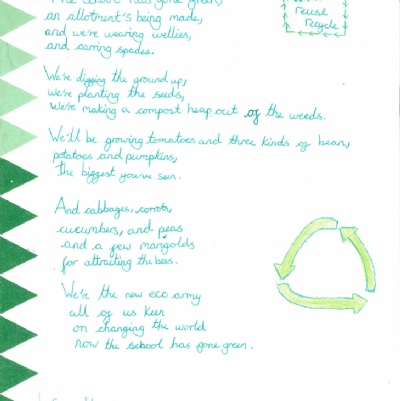 The school has gone green,
an allotment's being made,
and we're wearing wellies,
and carring spades.
reuse
Recycle
We're digging the ground up,
we're planting the seeds,
We're making a compost heap out of the weeds.
We'll be growing tomatoes and three kinds of bean,
potatoes and pumpkins,
The biggest you've seen.
And cabbages, corrots,
cucumbers, and peas
and a few marigolds
for attracting the bees.
We're the new eco army
all of us keen
on changing the world
now the school has gone green.